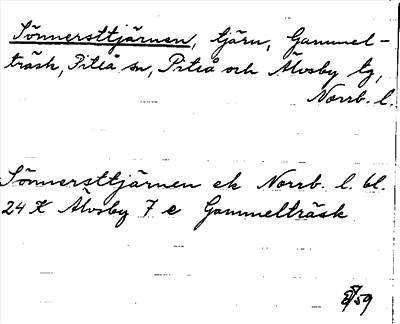 Sönnersttjärnen, tjärn, Gammel-
träsk, Piteå sn, Piteå och Älvsby tg,
Norrb. l.
Sönnersttjärnen ek Norrb. l. bl.
24 K Älvsby 7 e Gammelträsk
59